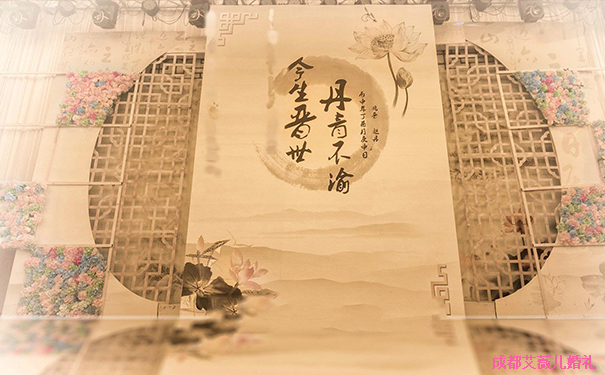 今生晋世
丹青不渝
成都艾薇儿婚礼